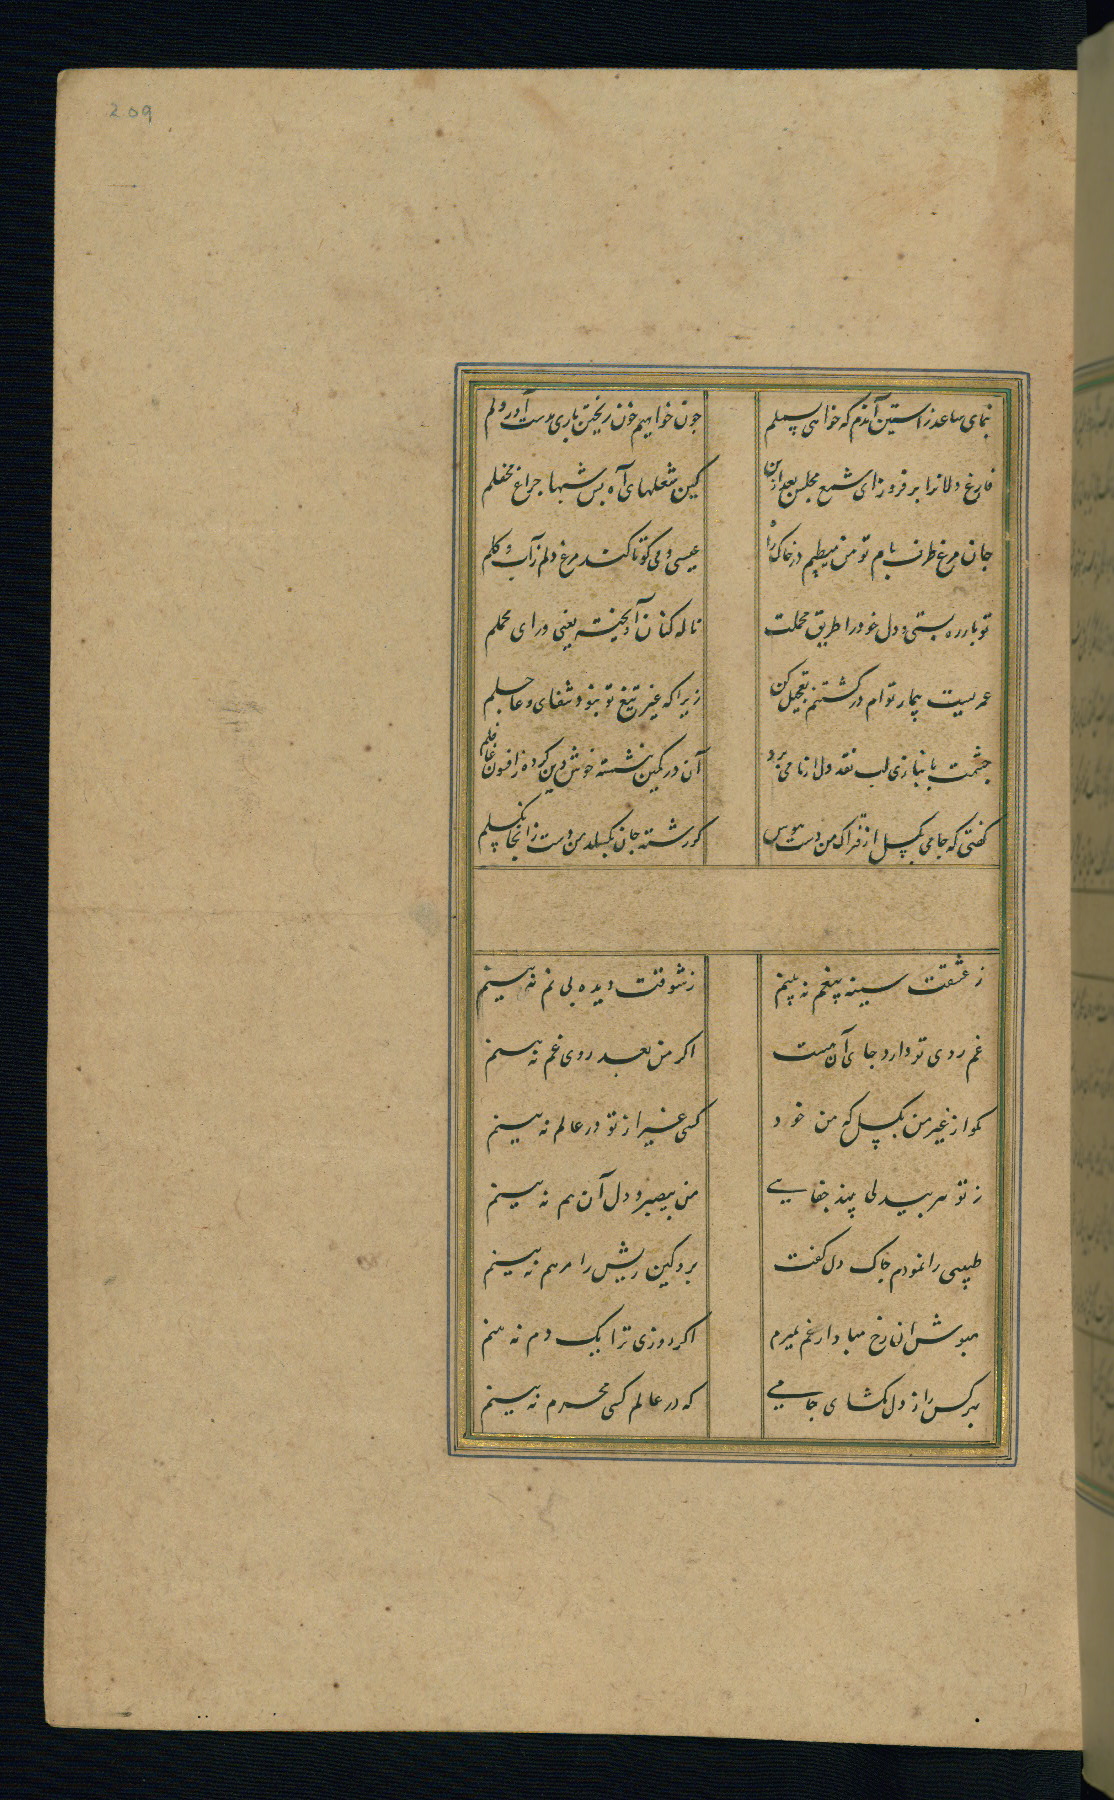 209
بنمای ساعد ز آستین آندم که خواهی بسملم چون خواهیم خون ریختن باری بدست آور دلم
فارغ دلانرا بر فروز ای شمع مجلس بعد ازین کین شعلهای آه بس شبها چراغ محفلم
جان مرغ طرف بام تو من میطپم در خاک راه عیسی دمی کو تا کند مرغ دلم ز آب و گلم
تو بار ره بستی و دل خود را طریق محملت ناله کنان آویخته یعنی درای محملم
عمریست بیمار توام در کشتنم تعجیل کن زیرا که غیر تیغ تو نبود شفای عاجلم
چشمت ببازی لب نقد دل از ما می برد آن در کمین بنشسته خوش وین کرده ز افسون غافلم
گفتی که جامی بگسل از فتراک من دست هوس گر رشته جان بگسلد من دست از آنجا نگسلم
ز عشقت سینه بیغم نه بینم ز شوقت دیده بی نم نه بینم
غم روی تو دارد جای آن هست اگر من بعد روی غم نه بینم
مگو از غیر من بگسل که من خود کسی غیر از تو در عالم نه بینم
ز تو هر بیدلی بیند جفایی من بیصبر و دل آن هم نه بینم
طبیبی را نمودم چاک دل گفت برو کین ریش را مرهم نه بینم
مپوش آن رخ مبادا از غم بمیرم اگر روزی ترا یک دم نه بینم
بهر کس راز دل مگشای جامی که در عالم کسی محرم نه بینم